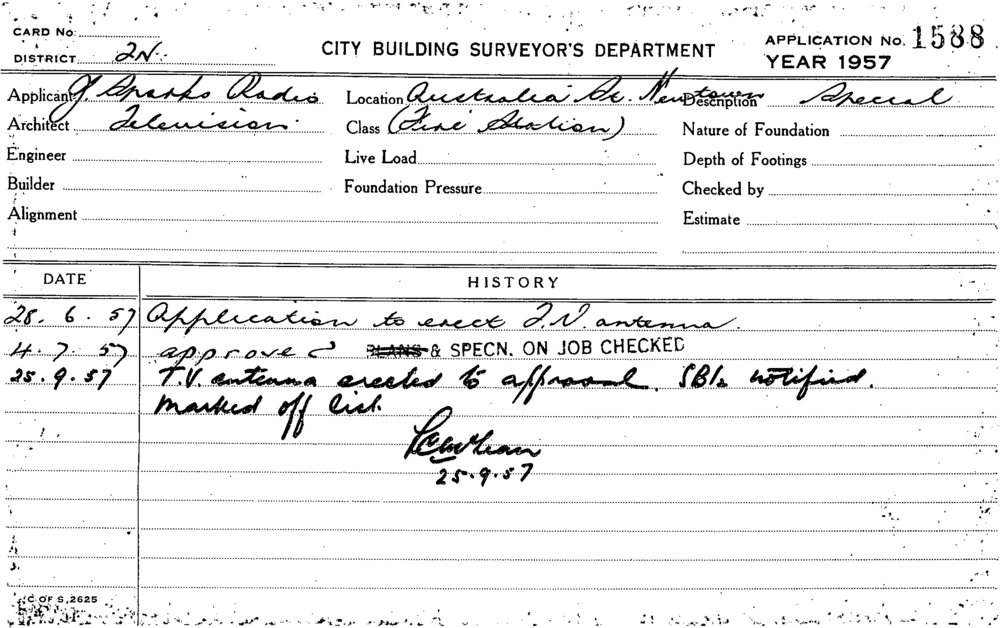 CARD No.
DISTRICT 2N.
CITY BUILDING SURVEYOR'S DEPARTMENT
APPLICATION No. 1588
YEAR 1957
Applicant J. Sparks Radio Location Australia St. Newtown Description Special
Architect Television Class (Fire Station) Nature of Foundation
Engineer Live Load Depth of Footings
Builder Foundation Pressure Checked by
Alignment Estimate
DATE HISTORY
28. 6. 57 Application to erect T.V. antenna.
4. 7. 57 approved PLANS & SPECN. ON JOB CHECKED
25. 9. 57 T.V. antenna erected to approval. notified.
Marked off list.
25.9.57
C OF S. 2625